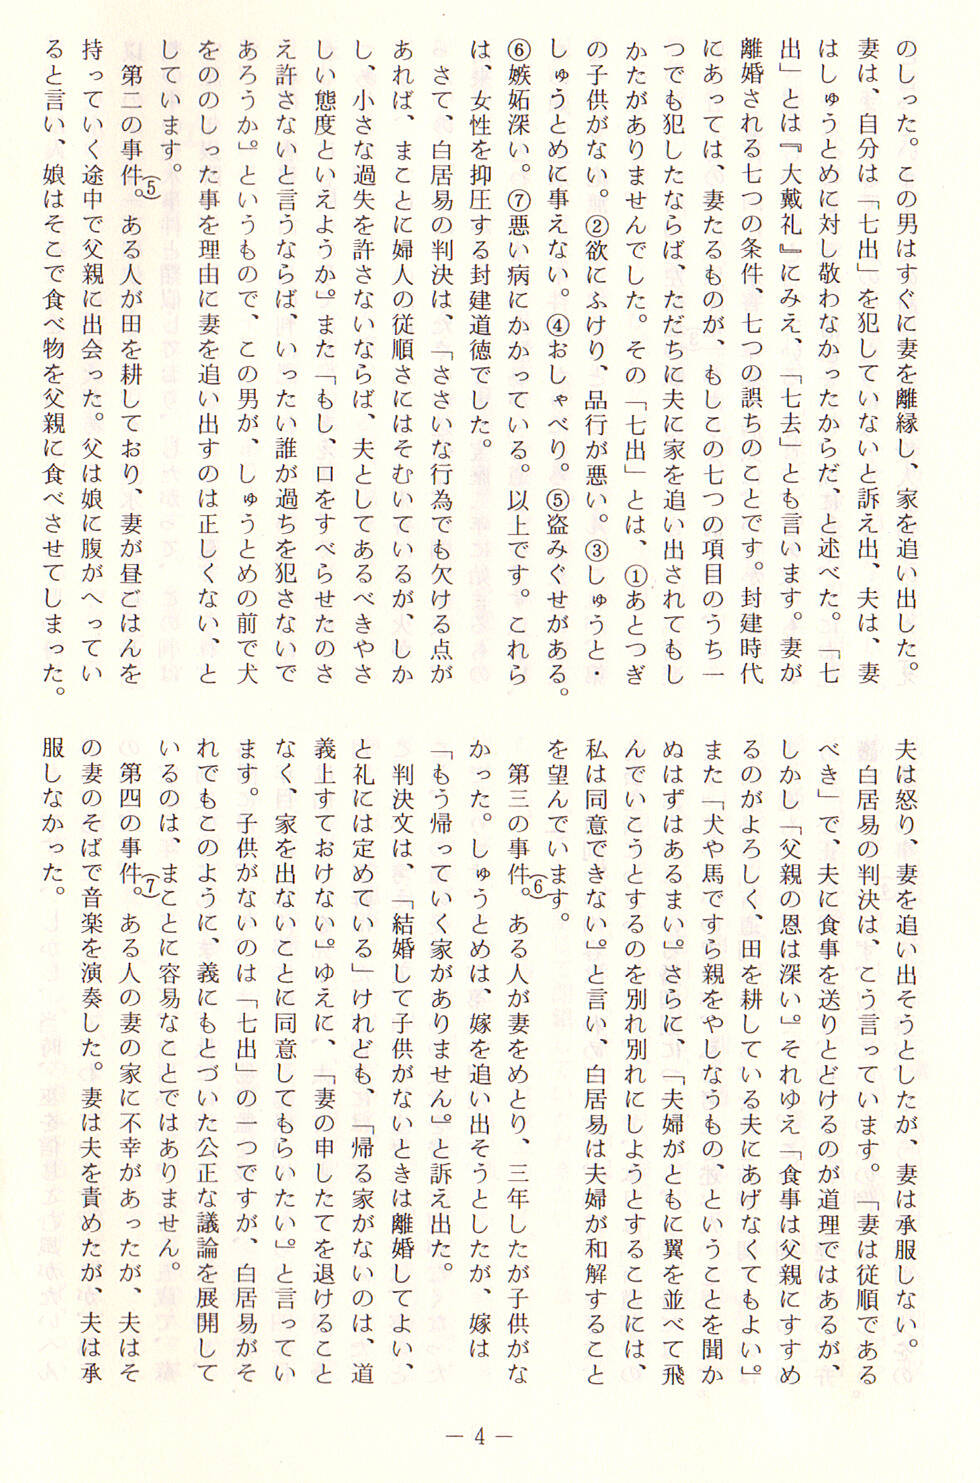 のしった。この男はすぐに妻を離縁し、家を追い出した。
妻は、自分は「七出」を犯していないと訴え出、夫は、妻
はしゅうとめに対し敬わなかったからだ、と述べた。「七
出」とは『大戴礼』にみえ、「七去」とも言います。妻が
離婚される七つの条件、七つの誤ちのことです。封建時代
にあっては、妻たるものが、もしこの七つの項目のうち一
つでも犯したならば、ただちに夫に家を追い出されてもし
かたがありませんでした。その「七出」とは、①あとつぎ
の子供がない。②欲にふけり、品行が悪い。③しゅうと・
しゅうとめに事えない。④おしゃべり。⑤盗みぐせがある。
⑥嫉妬深い。⑦悪い病にかかっている。以上です。これら
は、女性を抑圧する封建道徳でした。
さて、白居易の判決は、「ささいな行為でも欠ける点が
あれば、まことに婦人の従順さにはそむいているが、しか
し、小さな過失を許さないならば、夫としてあるべきやさ
しい態度といえようか。」また「もし、口をすべらせたのさ
え許さないと言うならば、いったい誰が過ちを犯さないで
あろうか。」というもので、この男が、しゅうとめの前で犬
をののしった事を理由に妻を追い出すのは正しくない、と
しています。
第二の事件。(5)ある人が田を耕しており、妻が昼ごはんを
持っていく途中で父親に出会った。父は娘に腹がへってい
ると言い、娘はそこで食べ物を父親に食べさせてしまった。
夫は怒り、妻を追い出そうとしたが、妻は承服しない。
白居易の判決は、こう言っています。「妻は従順である
べき」で、夫に食事を送りとどけるのが道理ではあるが、
しかし「父親の恩は深い。」それゆえ「食事は父親にすすめ
るのがよろしく、田を耕している夫にあげなくてもよい。」
また「犬や馬ですら親をやしなうもの、ということを聞か
ぬはずはあるまい。」さらに、「夫婦がともに翼を並べて飛
んでいこうとするのを別れ別れにしようとすることには、
私は同意できない。」と言い、白居易は夫婦が和解すること
を望んでいます。
第三の事件。(6)ある人が妻をめとり、三年したが子供がな
かった。しゅうとめは、嫁を追い出そうとしたが、嫁は
「もう帰っていく家がありません。」と訴え出た。
判決文は、「結婚して子供がないときは離婚してよい、
と礼には定めている」けれども、「帰る家がないのは、道
義上すておけない。」ゆえに、「妻の申したてを退けること
なく、家を出ないことに同意してもらいたい。」と言ってい
ます。子供がないのは「七出」の一つですが、白居易がそ
れでもこのように、義にもとづいた公正な議論を展開して
いるのは、まことに容易なことではありません。
第四の事件。(7)ある人の妻の家に不幸があったが、夫はそ
の妻のそばで音楽を演奏した。妻は夫を責めたが、夫は承
服しなかった。
― 4 ―